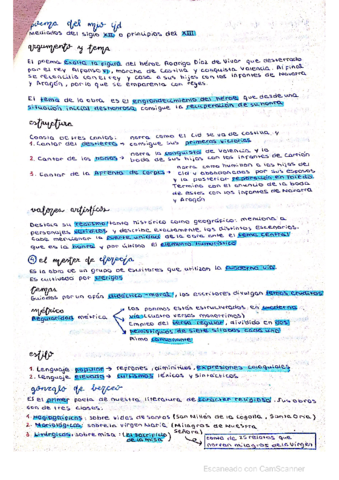 poema del mío cid
mediados del siglo XII o principios del XIII
argumento y tema
El poema exalta la figura del héroe Rodrigo Díaz de Vivar que desterrado
por el rey Alfonso VI, marcha de Castilla y conquista Valencia. Al final
se reconcilia con el rey y casa a sus hijas con los infantes de Navarra
y Aragón, por lo que se emparenta con reyes.
El tema de la obra es el engrandecimiento del héroe que desde una
situación inicial deshonrosa consigue la recuperación de su honra
estructura
Consta de tres cantos: narra como el Cid se va de Castilla, y
1. Cantar del destierro → consigue sus primeras victorias
narra la conquista de Valencia y la
2. Cantar de las bodas → boda de sus hijas con los infantes de Carrión
narra como humillan a las hijas del
3. Cantar de la Afrenta de Corpes → Cid y abandonadas por sus esposos
y la posterior reparación en Toledo
Termina con el anuncio de la boda
de éstas con los infantes de Navarra
y Aragón
valores artísticos
Destaca su realismo tanto histórico como geográfico: menciona a
personajes verídicos y describe exactamente los distintos escenarios.
Cabe mencionar la fuerte unidad de la obra ante el tema central
que es la honra y por último el elemento humorístico
el mester de clerecía
Es la obra de un grupo de escritores que utilizan la cuaderna vía.
Es cultivada por clérigos
temas
Guiados por un afán didáctico-moral, los escritores divulgan temas eruditos
métrica
Los poemas están estructurados en cuaderna
Regularidad métrica
vía (cuatro versos monorrimos)
Empleo del verso regular, dividido en dos
hemistiquios de siete sílabas cada uno
Rima consonante
estilo
1. Lenguaje popular → refranes, diminutivos, expresiones coloquiales
2. Lenguaje elevado → cultismos léxicos y sintácticos
gonzalo de berceo
Es el primer poeta de nuestra literatura de carácter religioso. Sus obras
son de tres clases:
1. Hagiográficas: sobre vidas de santos (San Millán de la Cogolla, Santa Oria)
2. Mariológicas: sobre la virgen María (Milagros de Nuestra
Señora)
3. Litúrgicas: sobre misa (El sacrificio
de la misa)
consta de 25 relatos que
narran milagros de la Virgen
Escaneado con CamScanner